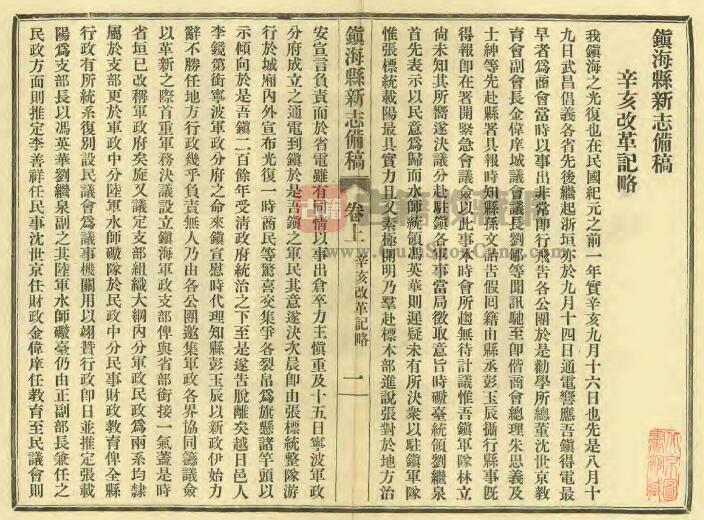 鎮海縣新志備稿
辛亥改革記略
我鎮海之光復也在民國紀元之前一年實辛亥九月十六日也先是八月十
九日武昌倡義各省先後繼起浙垣亦於九月十四日通電響應吾鎮得電最
早者爲商會當時以事出非常即行飛告各公團於是勸學所總董沈世京教
育會副會長金偉庠城議會議長劉邠等聞訊馳至即偕商會總理朱思義及
士紳等先赴縣署具報時知縣孫文詒告假回籍由縣丞彭玉辰攝行縣事旣
得報即在署開緊急會議僉以此事末時會所趨無待計議惟吾鎮軍隊林立
尙未知其所嚮遂決議分赴駐鎮各軍事當局徵取意旨時礮臺統領劉繼泉
首先表示以民意爲歸而水師統領馮英華則遲疑未有所決衆以駐鎮軍隊
惟張標統載陽最具實力且又素極開明乃羣赴標本部進說張對於地方治
鎮海縣新志備稿 卷上 辛亥改革記略 一
安宣言負責而於省電雖有同情以事出倉卒力主愼重及十五日寧波軍政
分府成立之通電到鎮於是吾鎮之軍民其意遂決次晨即由張標統整隊游
行於城廂內外宣布光復一時商民等驚喜交集爭各裂帛爲旗懸諸竿頭以
示傾向於是吾鎮二百餘年受淸政府統治之下至是遂告脫離矣越日邑人
李鏡第銜寧波軍政分府之命來鎮宣慰時代理知縣彭玉辰以新政伊始力
辭不勝任地方行政幾乎負責無人乃由各公團邀集軍政各界協同籌議僉
以革新之際首重軍務決議設立鎮海軍政支部俾與省部銜接一氣蓋是時
省垣已改稱軍政府矣旋又議定支部組織大綱內分軍政民政爲兩系均隸
屬於支部更於軍政中分陸軍水師礮隊於民政中分民事財政教育俾全縣
行政有所統系復別設民議會爲議事機關用以翊贊行政即日並推定張載
陽爲支部長以馮英華劉繼泉副之其陸軍水師礮臺仍由正副部長兼任之
民政方面則推定李善祥任民事沈世京任財政金偉庠任教育至民議會則
古籍